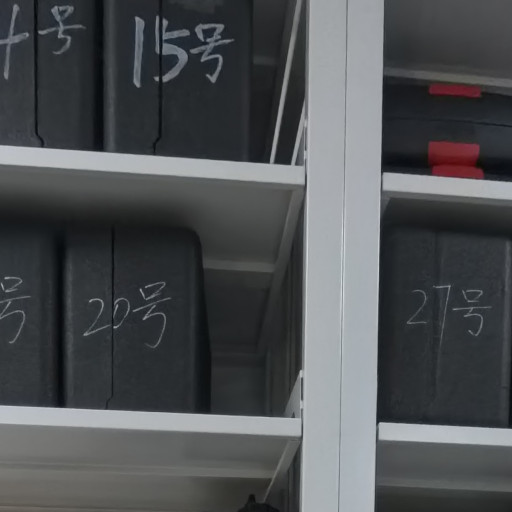 号
15号
号
20号
27号